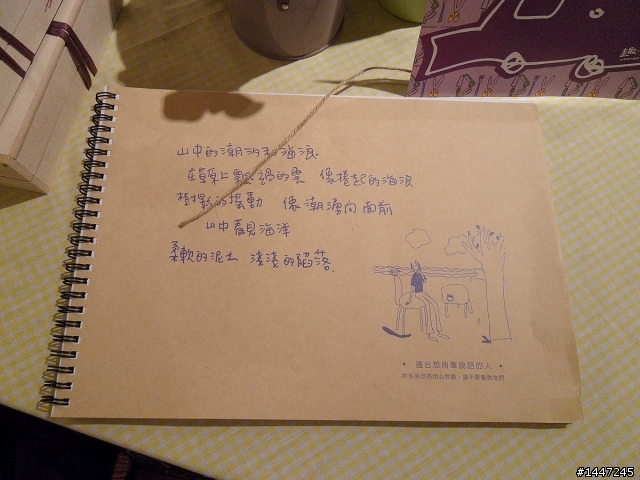 山中的潮汐和海浪.
在草原上飄過的雲 像捲起的海浪
的擺動 像潮湧向面前
山中看見海洋
柔軟的泥土 淺淺的陷落.
• 適合想用筆說話的人 •
#1447245